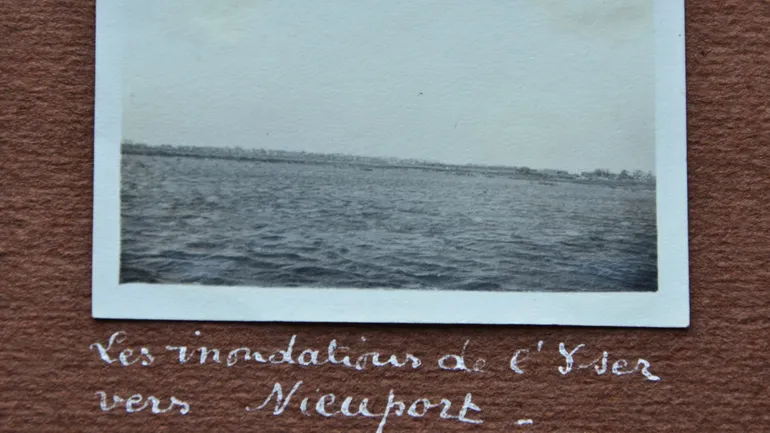 Les inondations de l'Yser
vers Nieuport -